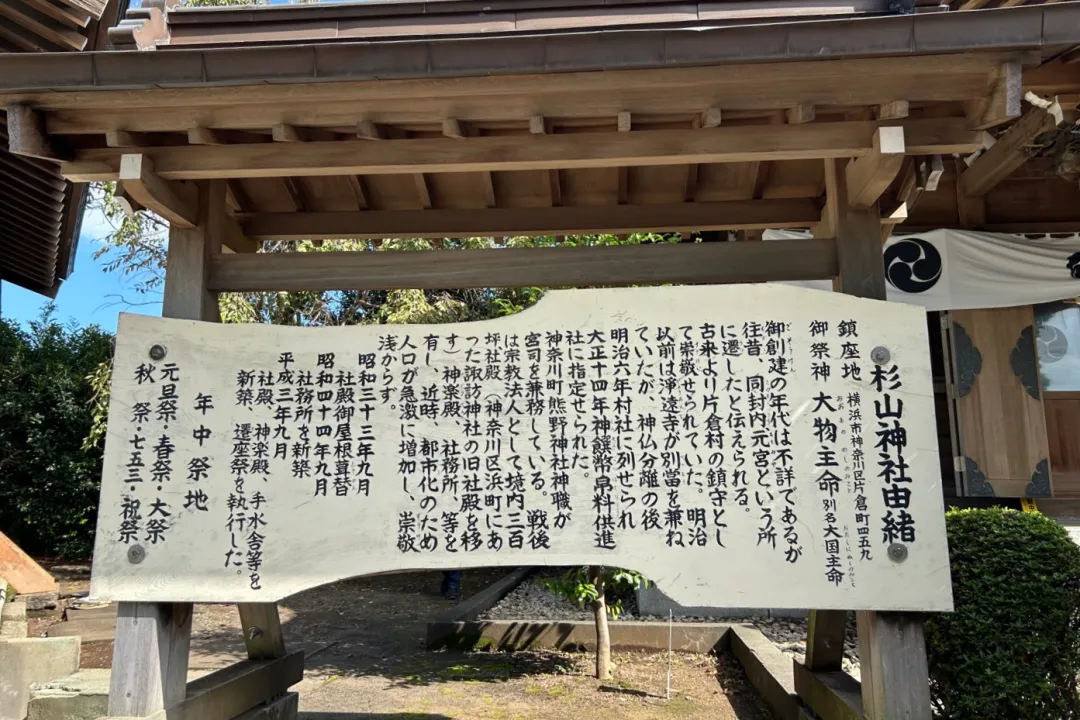 杉山神社由緒
鎮座地 横浜市神奈川区片倉町四五九
御祭神 大物主命 別名大国主命
御創建の年代は不詳であるが
往昔、同封内元宮という所
に遷したと伝えられる。
古来より片倉村の鎮守とし
て崇敬せられていた。明治
以前は浄遠寺が別當を兼ね
ていたが、神仏分離の後
明治六年村社に列せられ
大正十四年神饌幣帛料供進
社に指定せられた。
神奈川町熊野神社神職が
宮司を兼務している。戦後
は宗教法人として境内三百
坪社殿（神奈川区浜町にあ
った諏訪神社の旧社殿を移
す）神楽殿、社務所、等を
有し、近時、都市化のため
人口が急激に増加し、崇敬
浅からず。
昭和三十三年九月
社殿御屋根葺替
昭和四十四年九月
社務所を新築
平成三年九月
社殿、神楽殿、手水舎等を
新築、遷座祭を執行した。
年中祭地
元旦祭・春祭・大祭
秋祭・七五三・祝祭